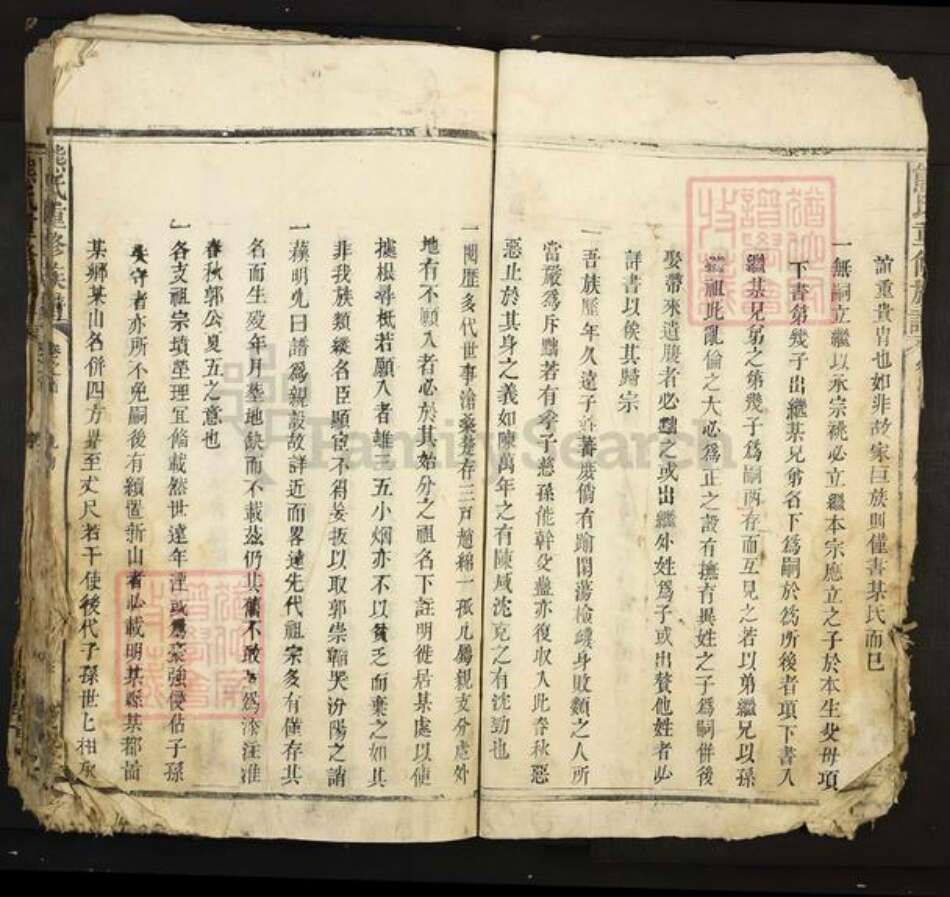 誼重貴冑也如非故家巨族則僅書某氏而已
一無嗣立繼以承宗祧必立繼本宗應立之子於本生父母項
下書第幾子出繼某兄弟名下爲嗣於爲所後者項下書入
繼某兄弟之第幾子爲嗣兩存而互見之若以弟繼兄以孫
祖此亂倫之大必爲正之設有撫育異姓之子爲嗣併後
娶帶來遺腹者必黜之或出繼外姓爲子或出贅他姓者必
詳書以俟其歸宗
一吾族歷年久遠子姓蕃廣倘有踰閑蕩檢辱身敗類之人所
當嚴爲斥黜若有孝子慈孫能幹父蠱亦復收入此春秋惡
惡止於其身之義如陳萬年之有陳咸沈充之有沈勁也
一閱歷多代世事滄桑楚存三戶趙綿一孤凡屬親支分處外
地有不願入者必於其始分之祖名下註明徙居某處以便
據根尋柢若願入者雖三五小烟亦不以貧乏而棄之如其
非我族類縱名臣顯宦不得妄扳以取郭崇韜哭汾陽之誚
一蘓明允曰譜爲親設故詳近而畧遠先代祖宗多有僅存其
名而生歿年月塟地缺而不載茲仍其舊不敢爲添注准
春秋郭公夏五之意也
一各支祖宗墳塋理宜備載然世遠年湮或爲豪強侵佔子孫
失守者亦所不免嗣後有續置新山者必載明某縣某都啚
某鄉某山名併四方界至丈尺若干使後代子孫世世相承
熊氏重修族譜
FamilySearch